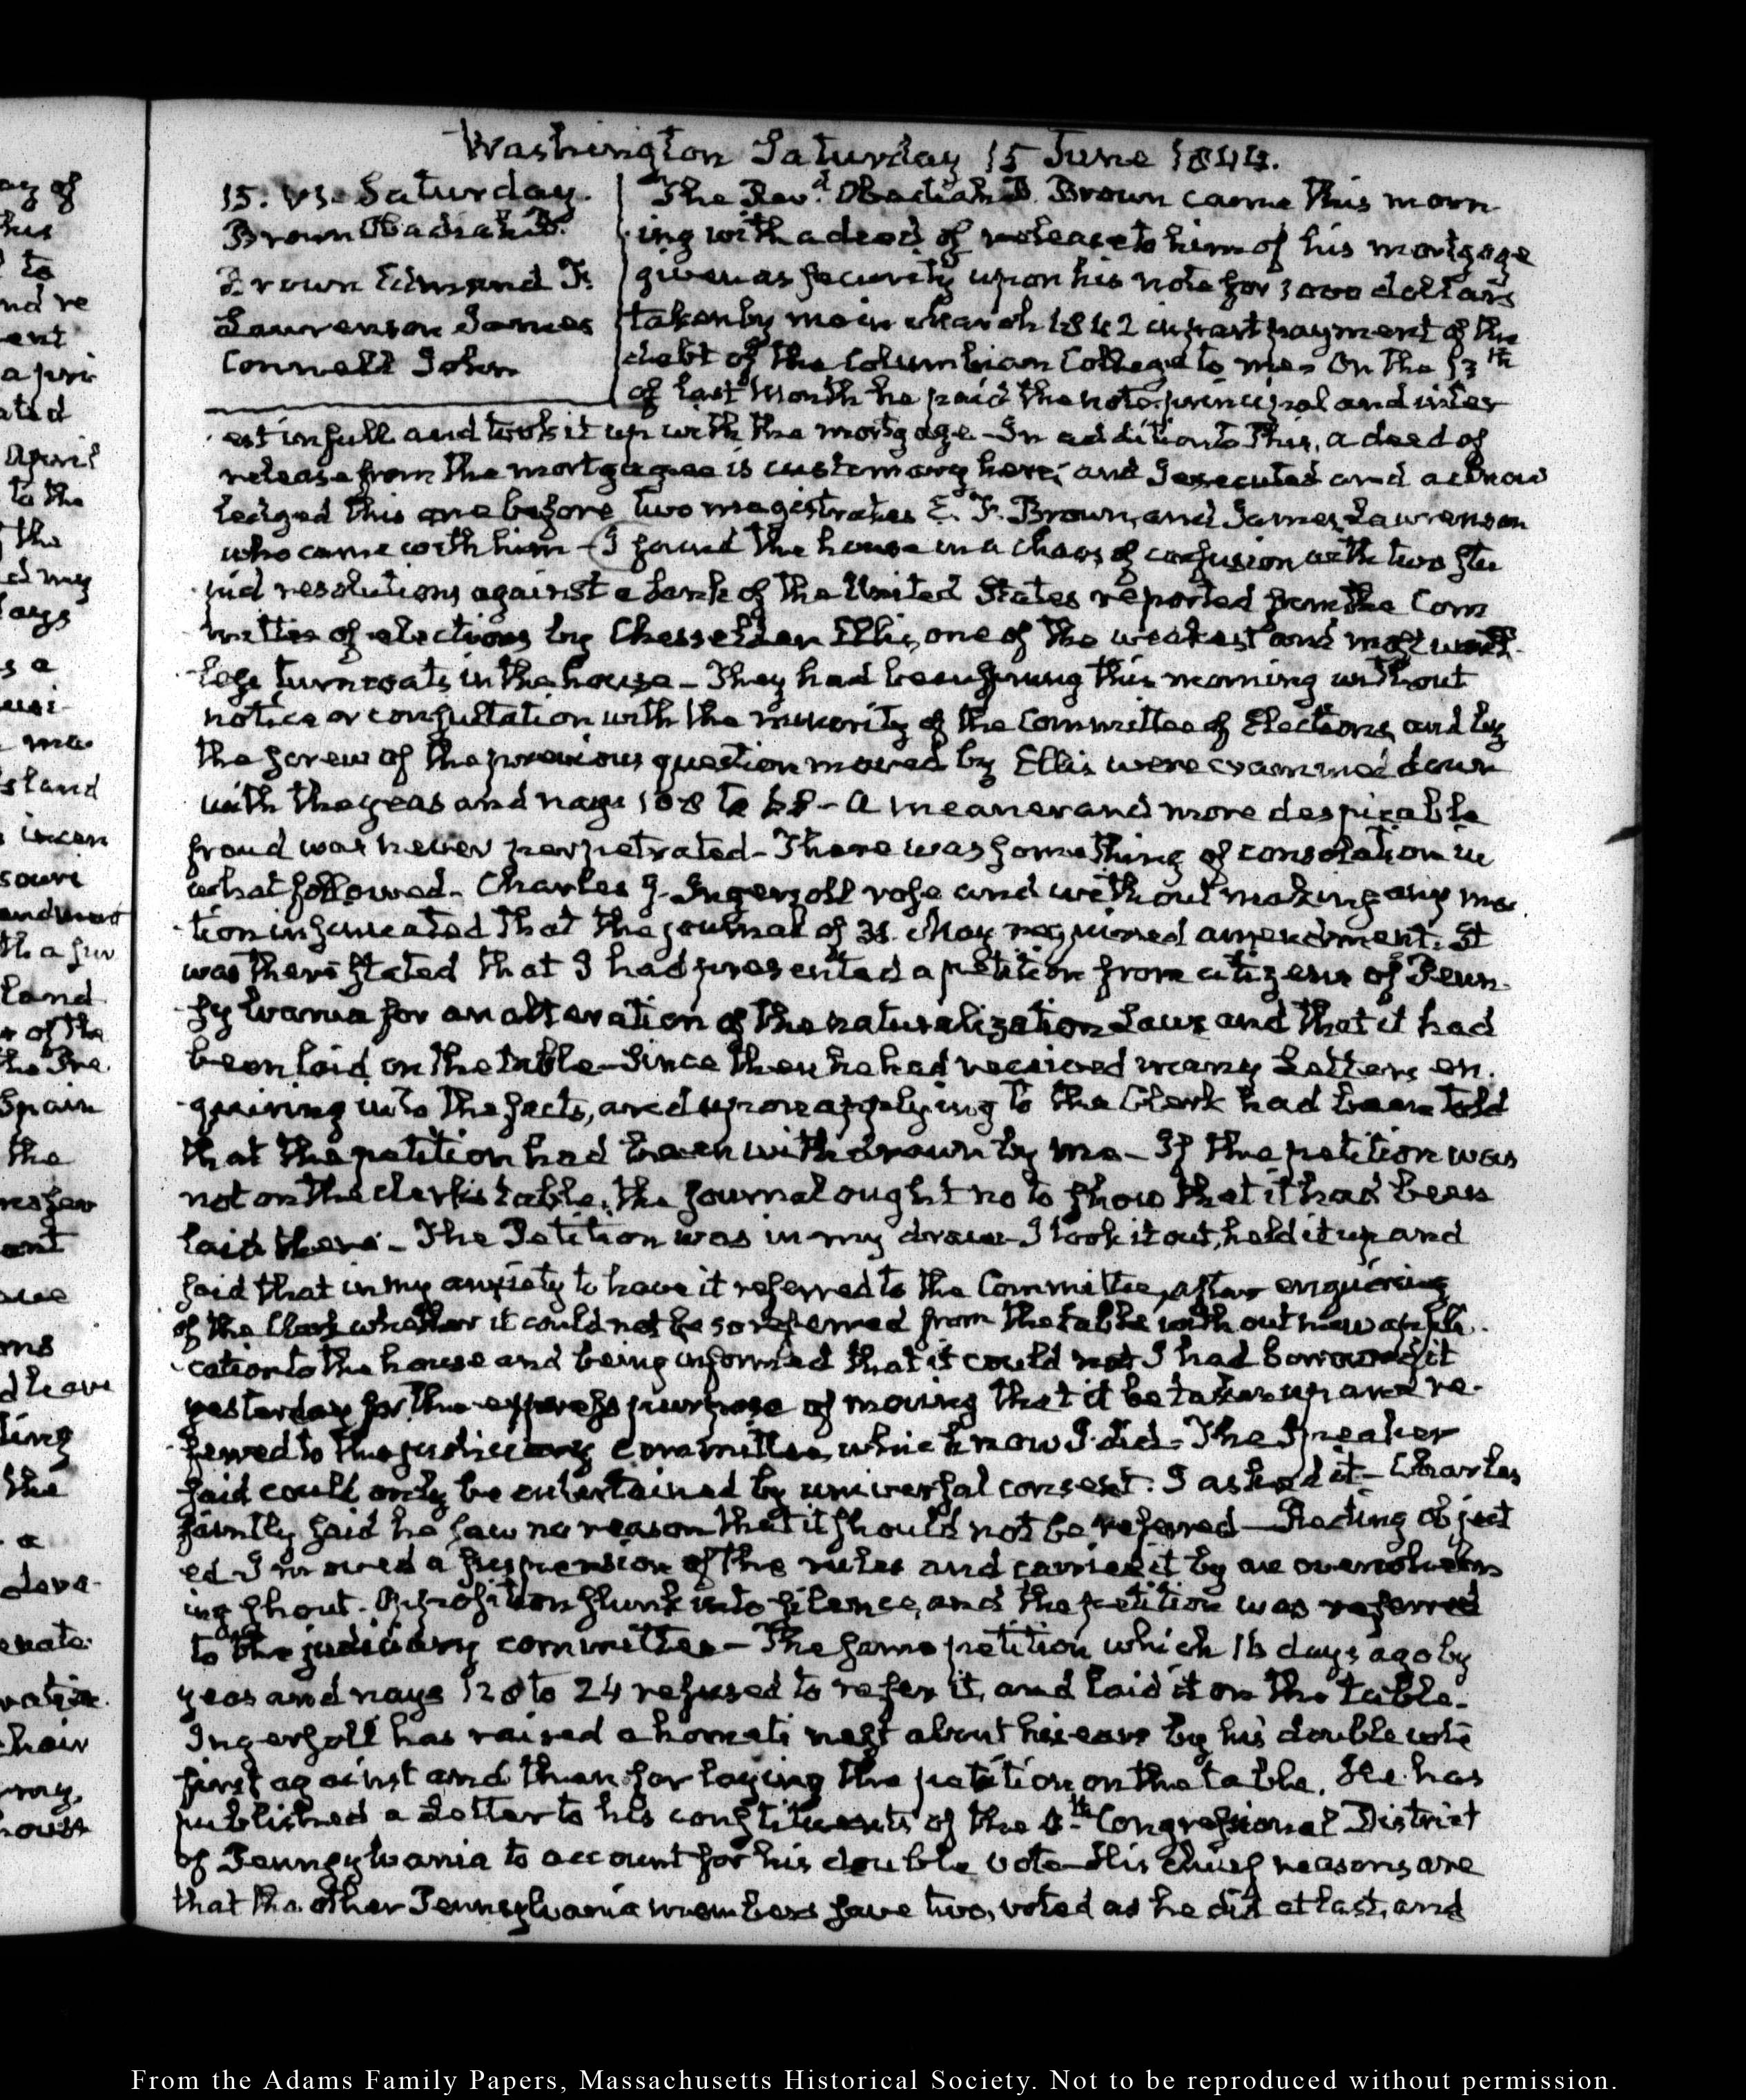 Washington Saturday 15 June 1844.
15. VI. Saturday.
Brown Obadiah B.
Brown Edmund F.
Lawrenson James
Connell John
The Revd. Obadiah B. Brown came this morn-
ing with a deed of release to him of his mortgage
given as security upon his note for 3000 dollars
taken by me in March 1842 in part payment of the
debt of the Columbian College to me. On the 13th
of last Month he paid the note, principal and inter
est in full and took it up with the mortgage – In addition to this, a deed of
release from the mortgagee is customary here; and I executed and acknow
ledged this one before two magistrates E. F. Brown, and James Lawrenson
who came with him – I found the house in a chaos of confusion with two stu
pid resolutions against a bank of the United States reported from the Com
mittee of elections by Chesselden Ellis, one of the weakest and most worth-
less turncoats in the house – They had been sprung this morning without
notice or consultation with the minority of the Committee of Elections, and by
the screw of the previous question moved by Ellis were crammed down
with the yeas and nays 108 to – A meaner and more despicable
fraud was never perpetrated – There was something of consolation in
what followed – Charles J. Ingersoll rose and without making any mo
tion insinuated that the journal of 31. May required amendment. It
was there stated that I had presented a petition from citizens of Penn-
sylvania for an alteration of the naturalization Laws and that it had
been laid on the table – Since then he had received many Letters en-
quiring into the facts, and upon applying to the Clerk had been told
that the petition had been withdrawn by me – If the petition was
not on the clerk's table, the journal ought not to show that it had been
laid there – The Petition was in my draw – I took it out, held it up and
said that in my anxiety to have it referred to the Committee, after enquiring
of the Clerk whether it could not be so referred from the table without new appli-
cation to the house and being informed that it could not I had borrowed it
yesterday for the express purpose of moving that it be taken up and re-
ferred to the judiciary committee, which now I did – The Speaker
said could only be entertained by universal consent. I asked it – Charles
faintly said he saw no reason that it should not be referred – Reding object
ed – I moved a suspension of the rules and carried it by an overwhelm
ing shout. Opposition slunk into silence, and the petition was referred
to the judiciary committee – The same petition which 16 days ago by
yeas and nays 128 to 24 refused to refer it, and laid it on the table.
Ingersoll has raised a hornets nest about his ears by his double vote
first against and then for laying the petition on the table. He has
published a Letter to his constituents of the 4th Congressional District
of Pennsylvania to account for his double vote – His chief reasons are
that the other Pennsylvania members save two, voted as he did at last, and
From the Adams Family Papers, Massachusetts Historical Society. Not to be reproduced without permission.